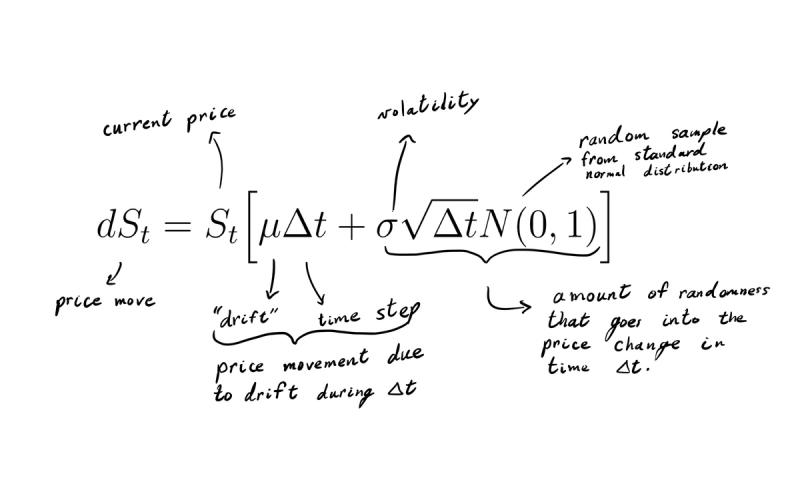 current price
volatility
random sample
from standard
normal distribution
dSₜ = Sₜ[μΔt + σ√Δt N(0, 1)]
price move
"drift"
time step
price movement due
to drift during Δt
amount of randomness
that goes into the
price change in
time Δt.